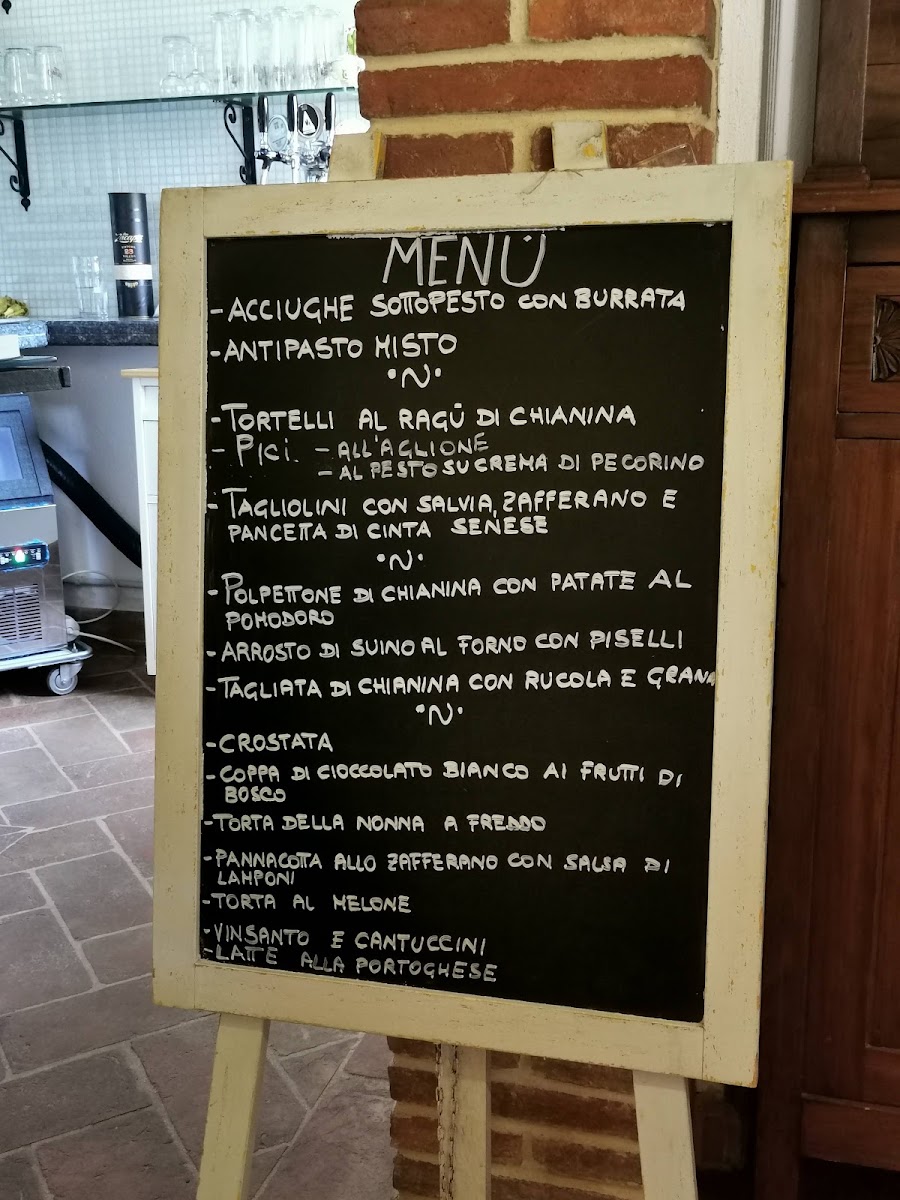 MENÙ
- ACCIUGHE SOTTOPESTO CON BURRATA
- ANTIPASTO MISTO
•N•
- TORTELLI AL RAGÙ DI CHIANINA
- PICI - ALL'AGLIONE
- AL PESTO SU CREMA DI PECORINO
- TAGLIOLINI CON SALVIA, ZAFFERANO E
PANCETTA DI CINTA SENESE
•N•
- POLPETTONE DI CHIANINA CON PATATE AL
POMODORO
- ARROSTO DI SUINO AL FORNO CON PISELLI
- TAGLIATA DI CHIANINA CON RUCOLA E GRANA
•N•
- CROSTATA
- COPPA DI CIOCCOLATO BIANCO AI FRUTTI DI
BOSCO
- TORTA DELLA NONNA A FREDDO
- PANNACOTTA ALLO ZAFFERANO CON SALSA DI
LAMPONI
- TORTA AL MELONE
- VINSANTO E CANTUCCINI
- LATTE ALLA PORTOGHESE
Zacapa
23